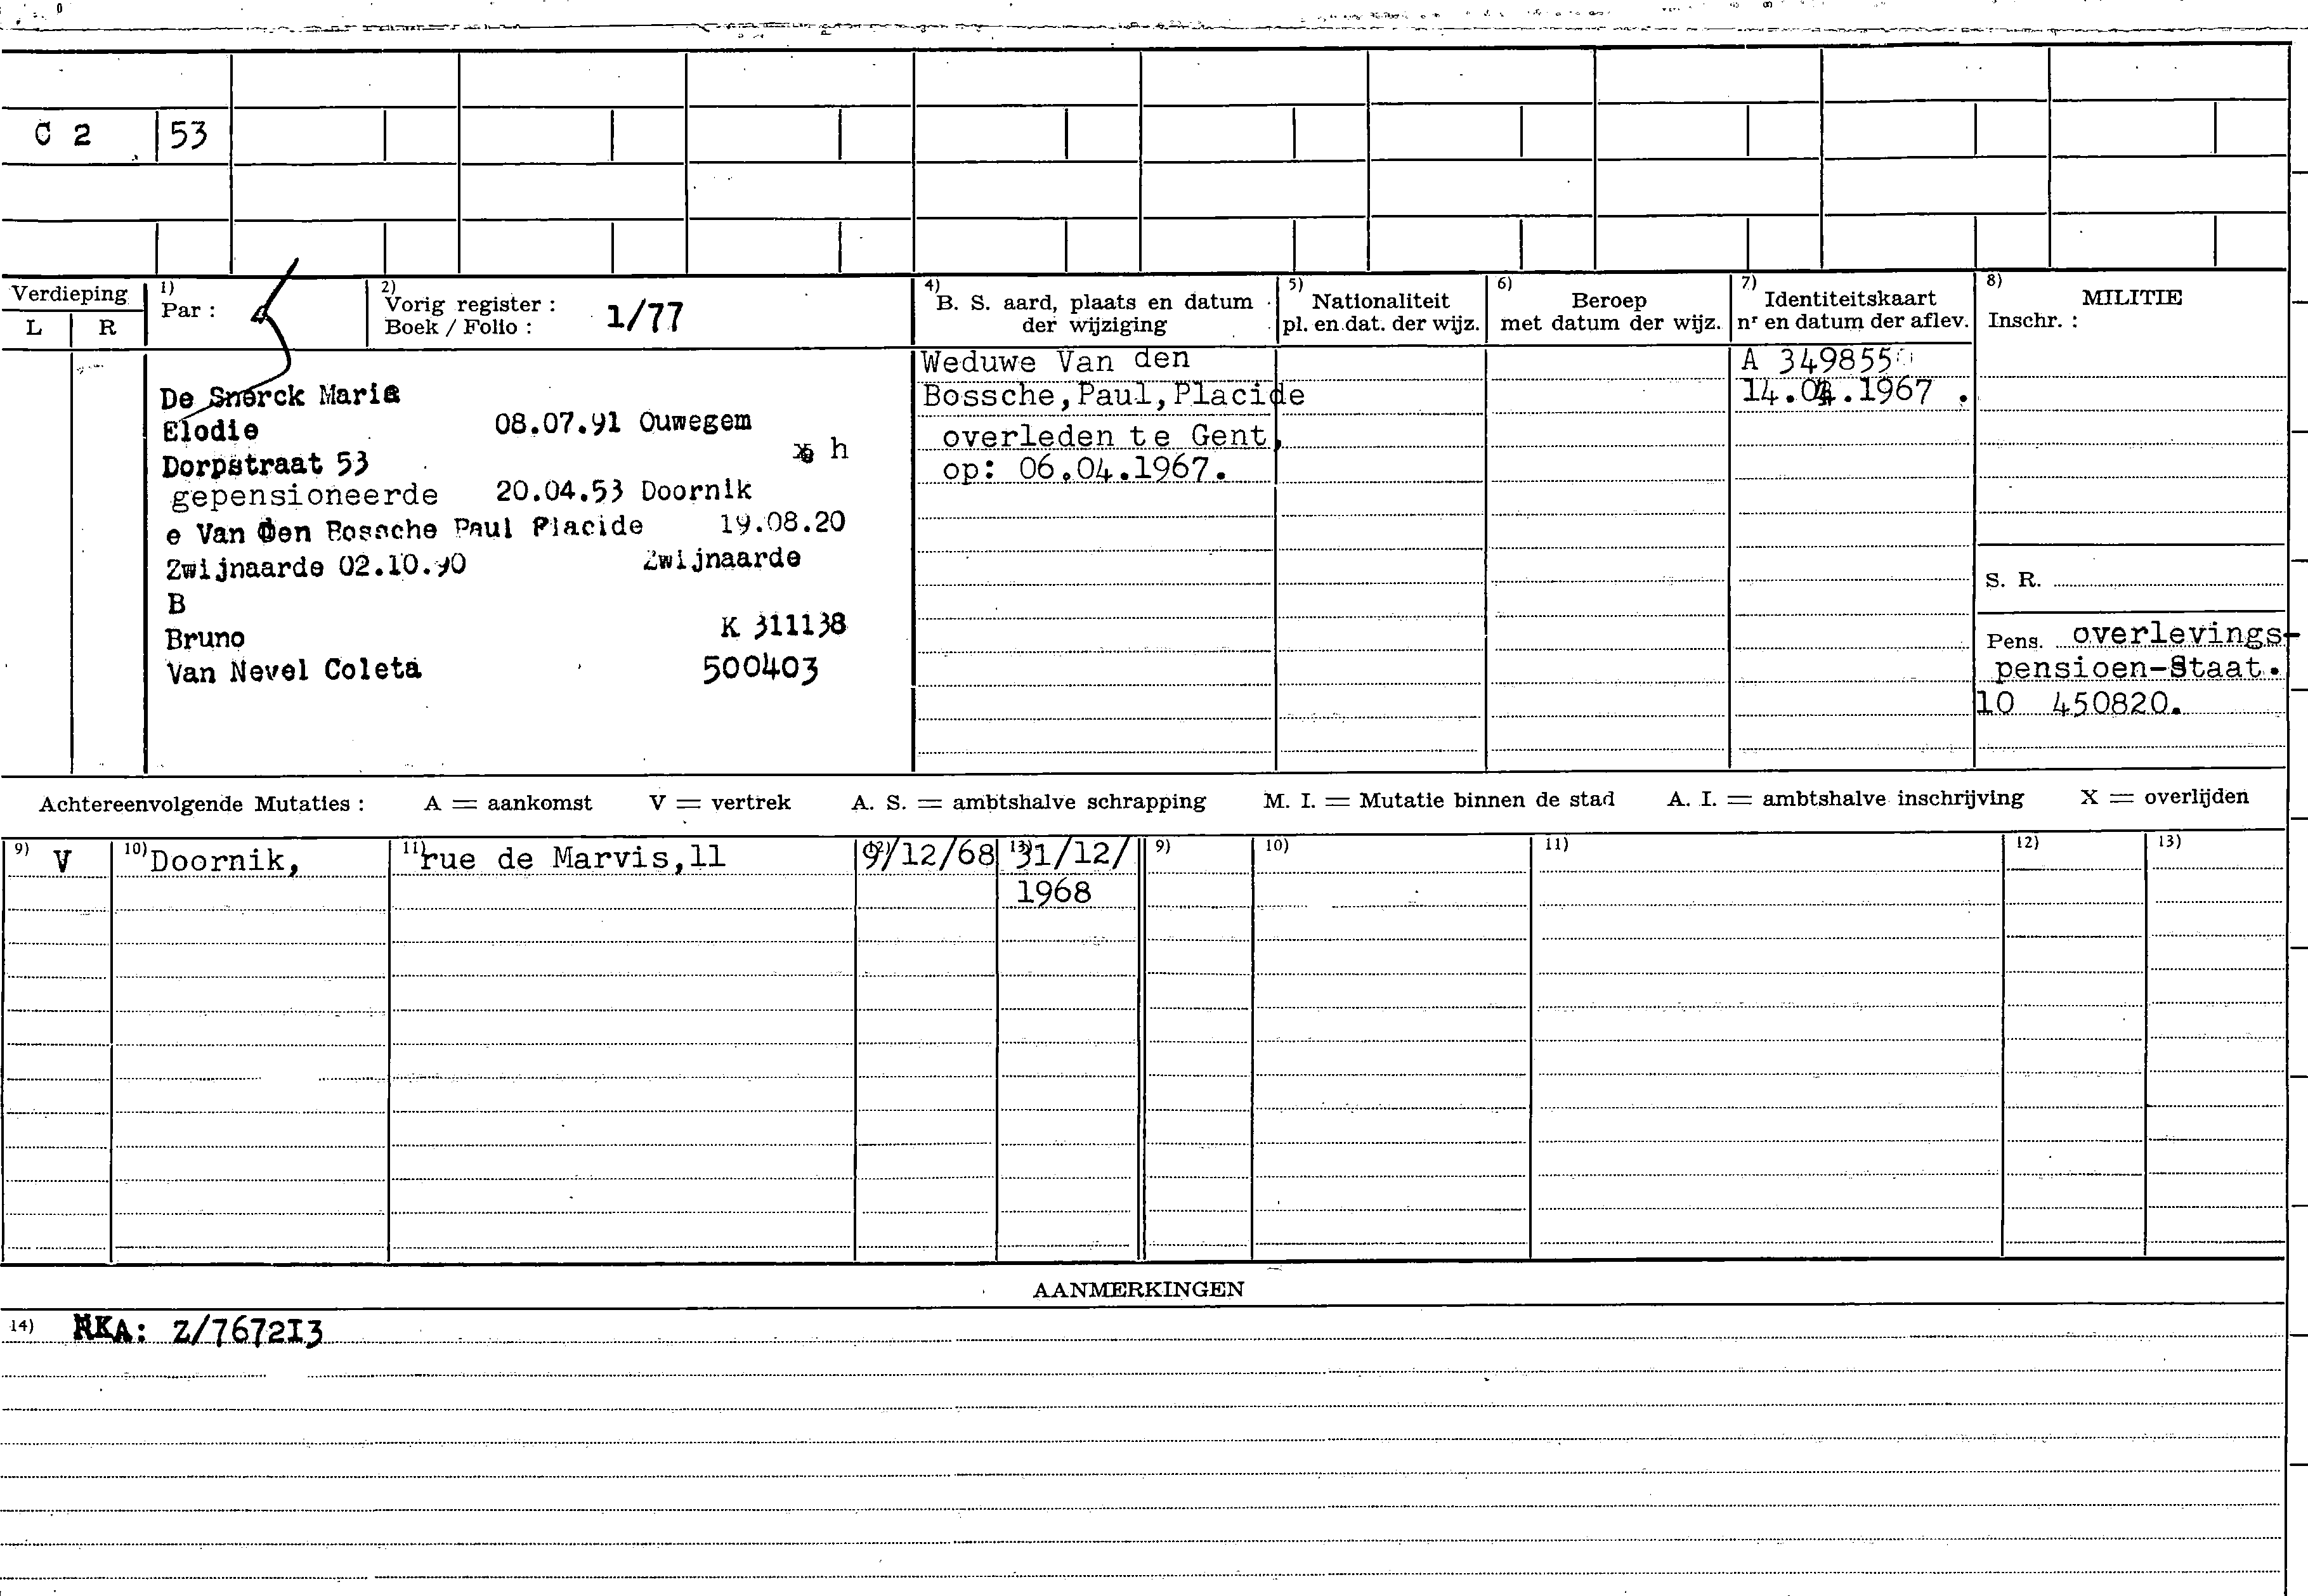 C 2 53
Verdieping
L R
1) Par :
2) Vorig register :
Boek / Folio : 1/77
4) B. S. aard, plaats en datum
der wijziging
5) Nationaliteit
pl. en dat. der wijz.
6) Beroep
met datum der wijz.
7) Identiteitskaart
nr en datum der aflev.
8) MILITIE
Inschr. :
De Snerck Maria
Elodie 08.07.91 Ouwegem
Dorpstraat 53 h
gepensioneerde 20.04.53 Doornik
e Van Den Bossche Paul Placide 19.08.20
Zwijnaarde 02.10.90 Zwijnaarde
B
Bruno K 311138
Van Nevel Coleta 500403
Weduwe Van den
Bossche, Paul, Placide
overleden te Gent,
op: 06.04.1967.
A 3498550
14.04.1967 .
S. R.
Pens. overlevings-
pensioen-Staat.
10 450820.
Achtereenvolgende Mutaties : A = aankomst V = vertrek A. S. = ambtshalve schrapping M. I. = Mutatie binnen de stad A. I. = ambtshalve inschrijving X = overlijden
9) V 10) Doornik, 11) rue de Marvis,11 12) 9/12/68 13) 31/12/ 9) 10) 11) 12) 13)
1968
AANMERKINGEN
14) RKA: Z/7672I3